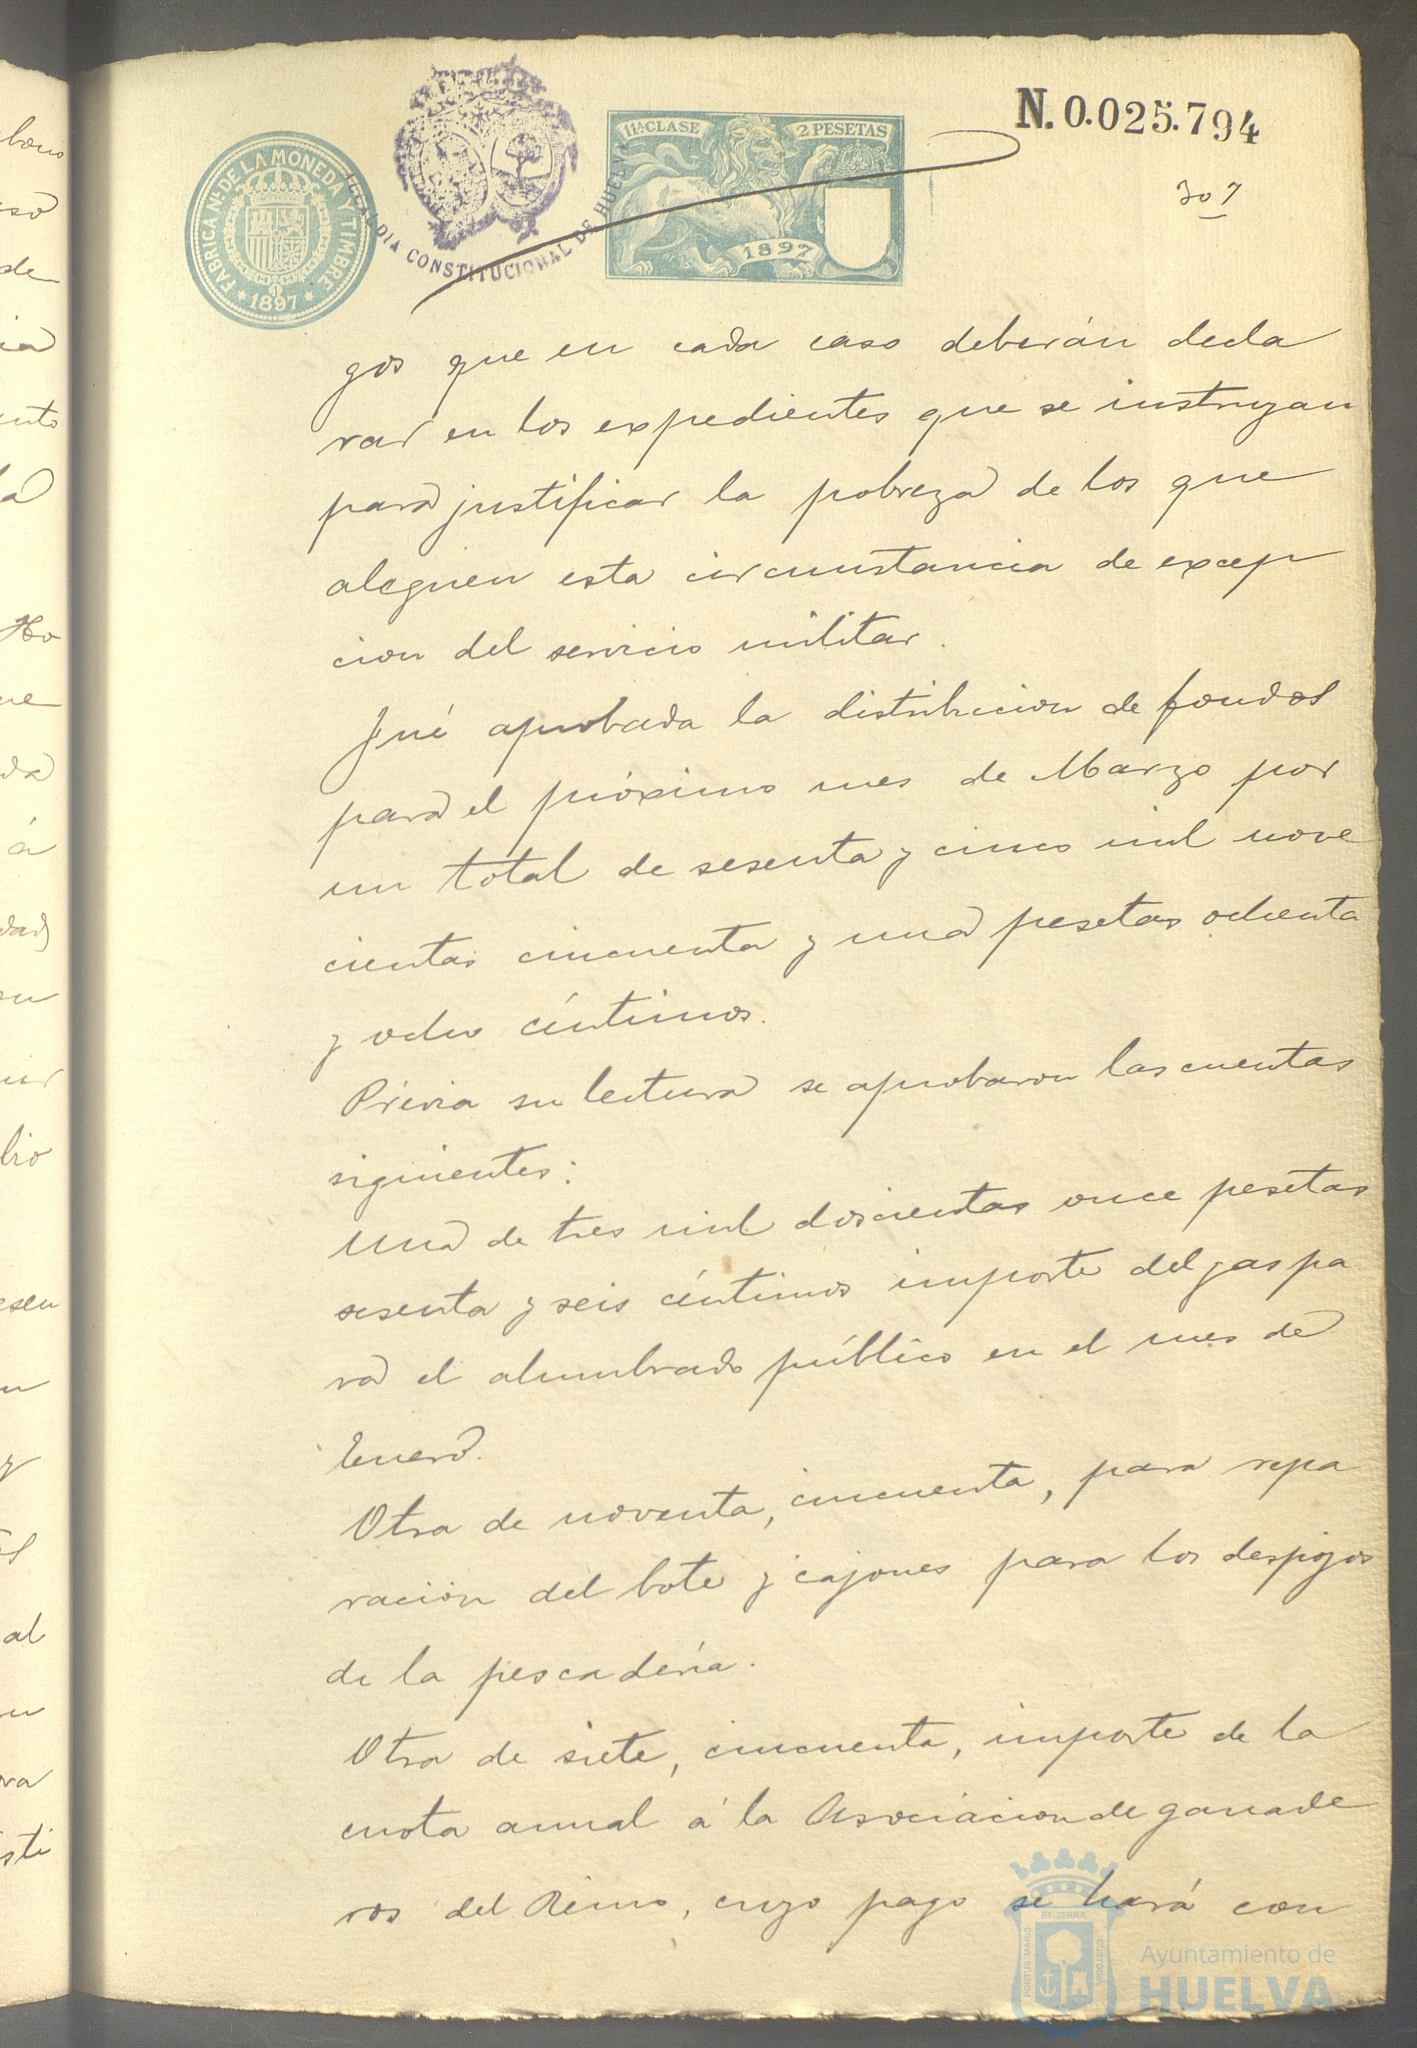 N. 0.025.794
307
FABRICA Nal DE LA MONEDA Y TIMBRE
* 1897 *
ALCALDIA CONSTITUCIONAL DE HUELVA
11ª CLASE 2 PESETAS
1897
gos que en cada caso deberán decla
rar en los expedientes que se instruyan
para justificar la pobreza de los que
aleguen esta circunstancia de excep
cion del servicio militar.
Fué aprobada la distribucion de fondos
para el próximo mes de Marzo por
un total de sesenta y cinco mil nove
cientas cincuenta y una pesetas ochenta
y ocho céntimos.
Prévia su lectura se aprobaron las cuentas
siguientes:
Una de tres mil doscientas once pesetas
sesenta y seis céntimos importe del gas pa
ra el alumbrado público en el mes de
Enero.
Otra de noventa, cincuenta, para repa
ración del bote y cajones para los despojos
de la pescadería.
Otra de siete, cincuenta, importe de la
cuota anual á la Asociacion de ganade
ros del Reino, cuyo pago se hará con
PORTUS MARIS ET TERRA CUSTODIA
Ayuntamiento de
HUELVA